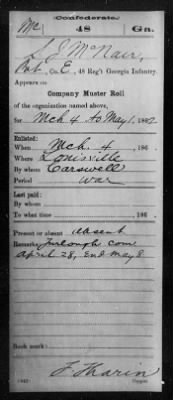 Confederate.
Mc 48 Ga.
L J McNair,
Pvt, Co. E, 48 Reg't Georgia Infantry.
Appears on
Company Muster Roll
of the organization named above,
for Mch 4 to May 1, 1862
Enlisted:
When Mch. 4, 186 .
Where Louisville
By whom Carswell
Period war
Last paid:
By whom
To what time , 186 .
Present or absent absent
Remarks: Furlough com
april 28, End May 8
Book mark:
F. Tharin
Copyist.